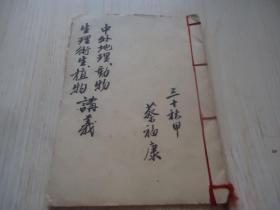 中外地理、動物
生理衛生、植物 講義
三十秋甲
蔡福康